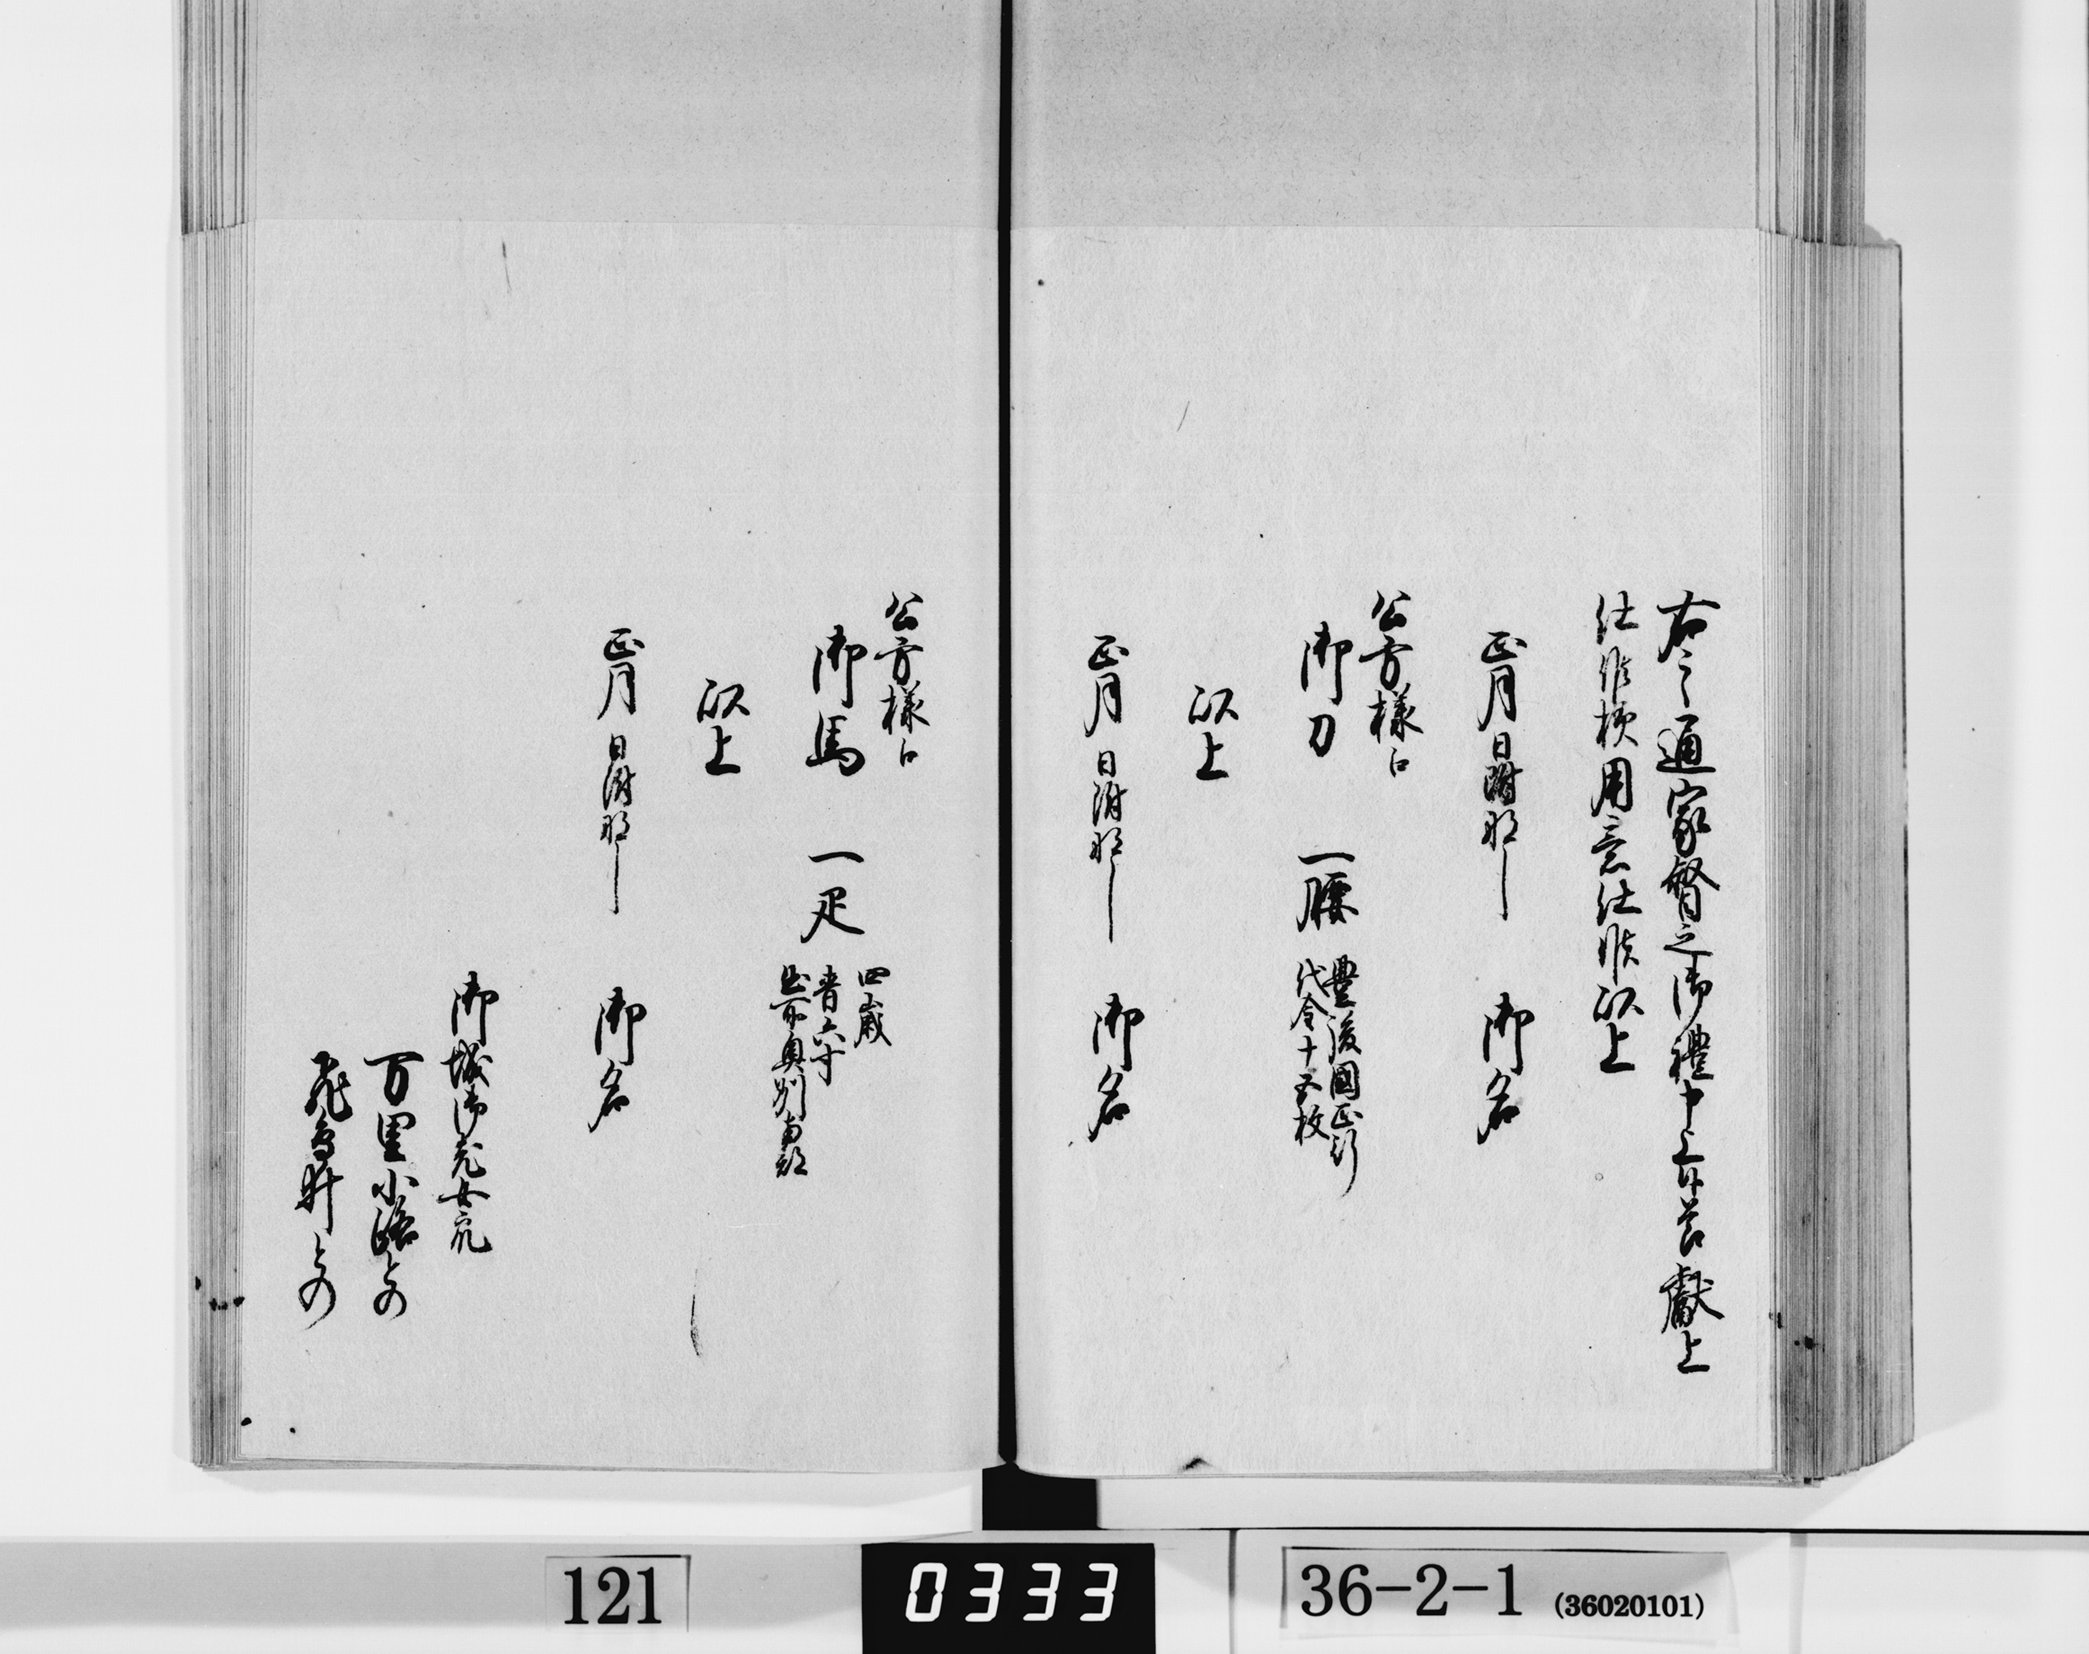 右之通家督之御禮申上候節献上
仕候様用意仕候以上
正月 日附那し 御名
公方様江
御刀 一腰 豊後國正行
代金十五枚
以上
正月 日附那し 御名
公方様江
御馬 一疋 四歳
青六寸
出所奥州南部
以上
正月 日附那し 御名
御城御老女宛
万里小路との
飛鳥井との
121
0333
36-2-1 (36020101)